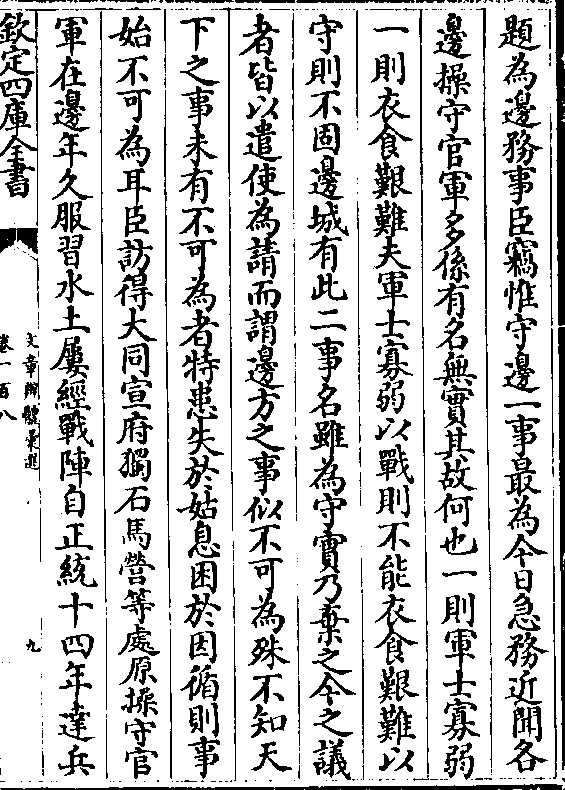 題為邊務事臣竊惟守邊一事最為今日急務近聞各
邊操守官軍多係有名無實其故何也一則軍士寡弱
一則衣食艱難夫軍士寡弱以戰則不能衣食艱難以
守則不固邊城有此二事名雖為守實乃棄之今之議
者皆以遣使為請而謂邊方之事似不可為殊不知天
下之事未有不可為者特患失於姑息困於因循則事
始不可為耳臣訪得大同宣府獨石馬營等處原操守官
軍在邊年久服習水土屢經戰陣自正統十四年達兵
欽定四庫全書
文章辨體彙選
卷一百八
九